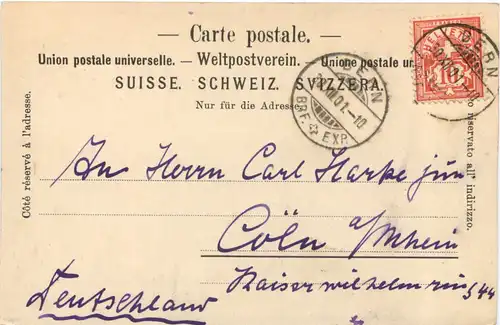 — Carte postale. —
Union postale universelle. — Weltpostverein. — Unione postale
SUISSE. SCHWEIZ. SVIZZERA.
Nur für die Adresse
Côté réservé à l'adresse.
riservato all' indirizzo.
BERN
VIII.01.–10
BRF. EXP.
BERN
10
An Herrn Carl Harke jun
Cöln a/Rhein
Kaiser wilhelm ring 44
Deutschland